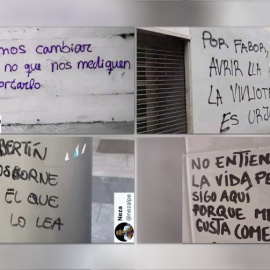 mos cambiar
no que nos mediquen
portarlo
POR FABOR,
AVRIR LLA
LA VIVLIOT
ES URJ
BERTÍN
OSBORNE
EL QUE
LO LEA
Neza
@nezalpe
NO ENTIEN
LA VIDA PE
SIGO AQUI
PORQUE ME
GUSTA COME